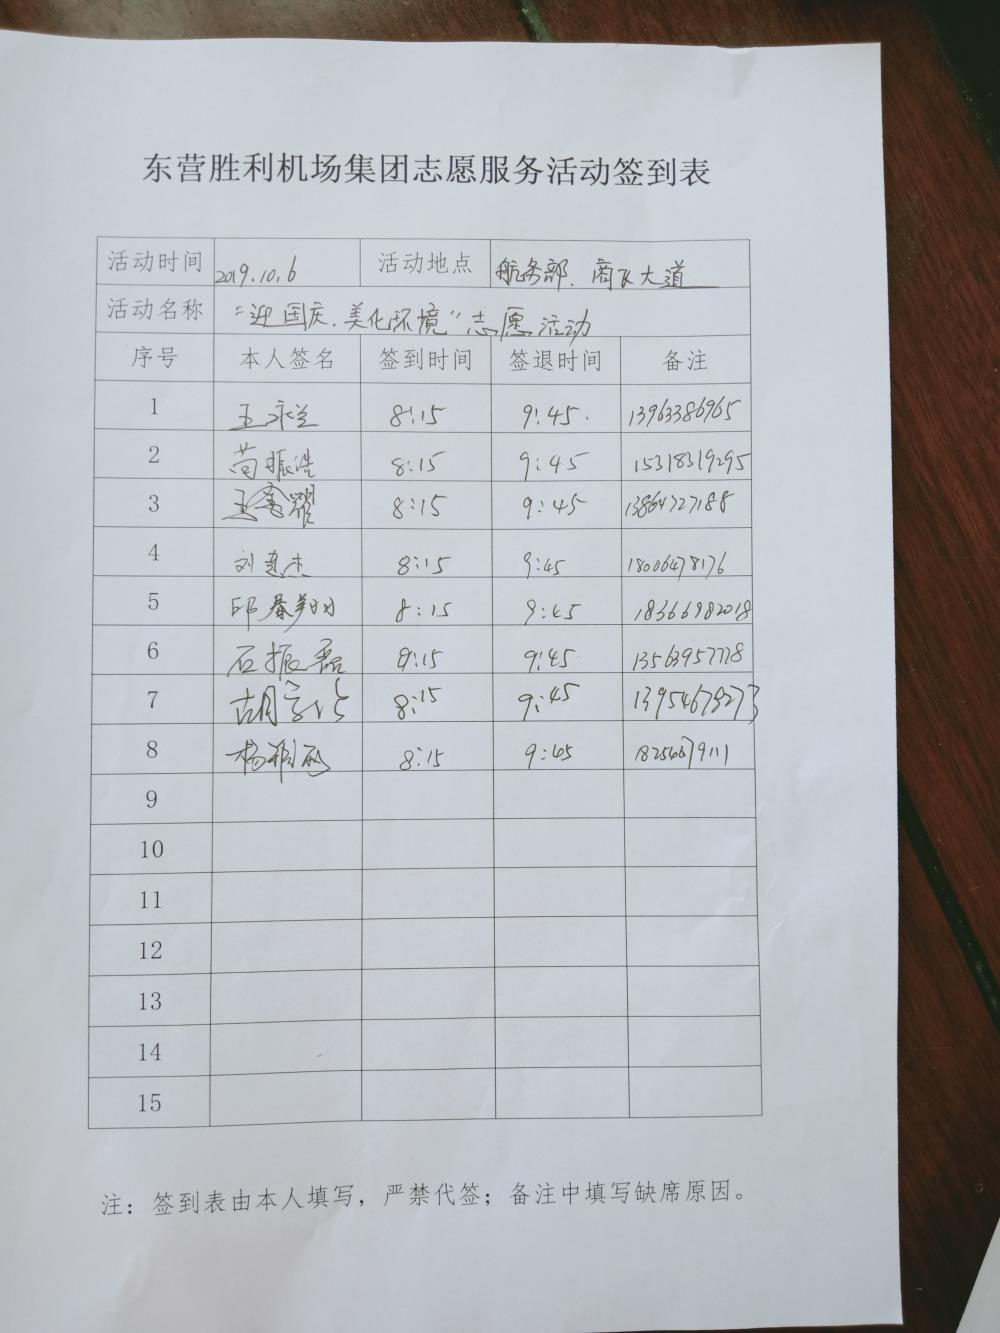 东营胜利机场集团志愿服务活动签到表
活动时间 2019.10.6 活动地点 航务部.商飞大道
活动名称 "迎国庆.美化环境"志愿活动
序号 本人签名 签到时间 签退时间 备注
1 王永兰 8:15 9:45. 13963386965
2 苟振浩 8:15 9:45 15318319295
3 8:15 9:45 13864727188
4 刘建杰 8:15 9:45 18006478176
5 邱春翔 8:15 9:45 18366982018
6 石振磊 8:15 9:45 13563957778
7 胡 8:15 9:45 13954673273
8 杨 8:15 9:45 18254679111
9
10
11
12
13
14
15
注：签到表由本人填写，严禁代签；备注中填写缺席原因。